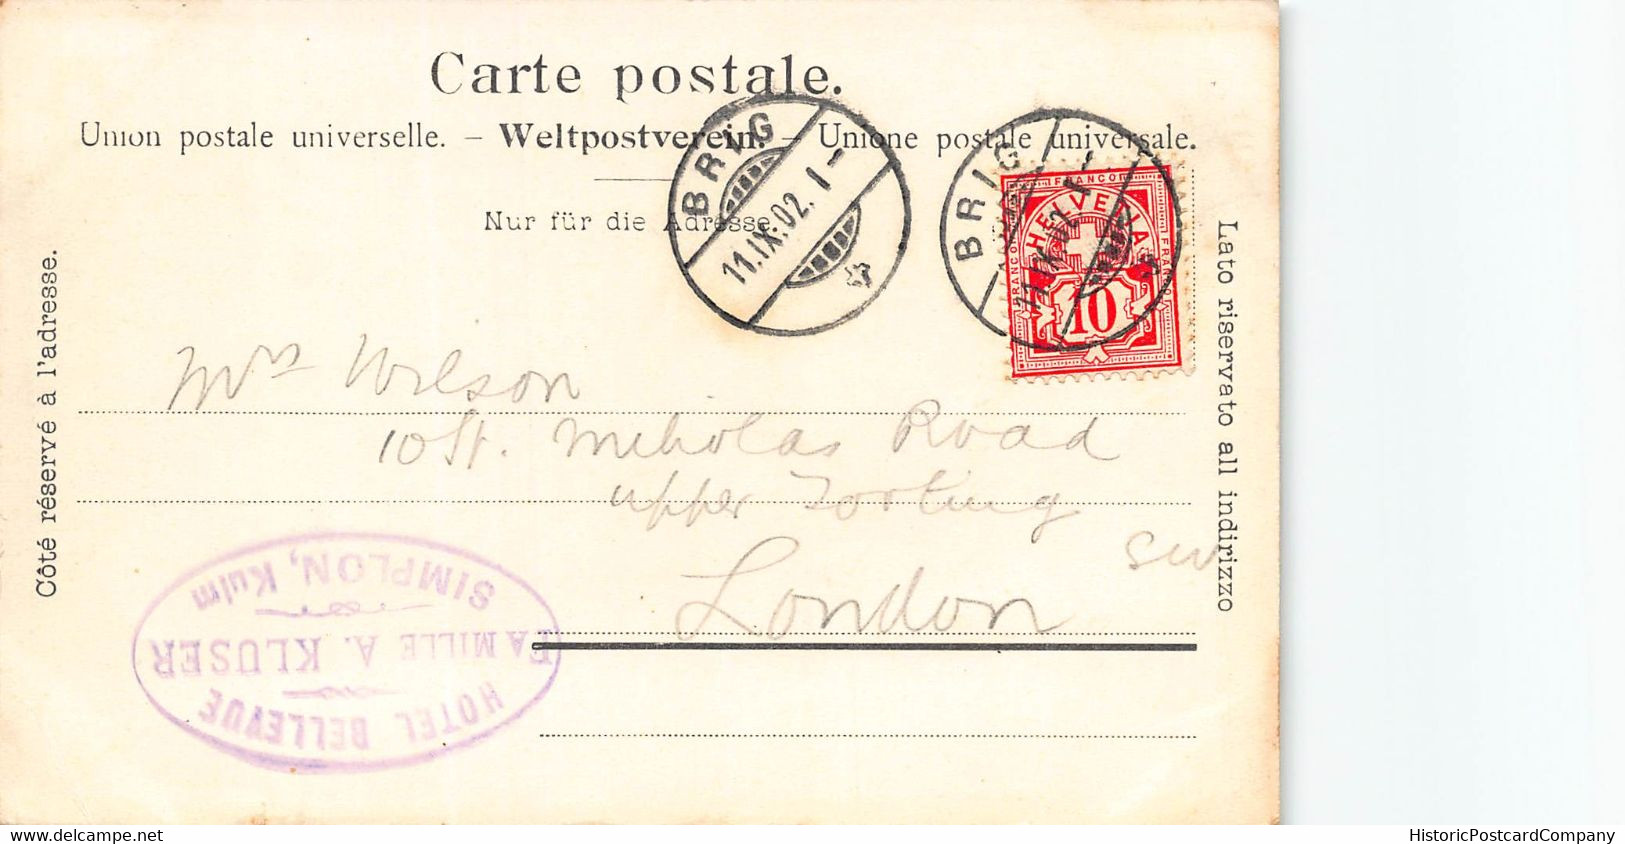 Carte postale.
Union postale universelle. – Weltpostverein. – Unione postale universale.
Nur für die Adresse.
BRIG
11.IX.02.1-
BRIG
11.IX.02.1-
FRANCO
FRANCO
FRANCO
HELVETIA
10
Côté réservé à l'adresse.
Lato riservato all indirizzo
Mrs Wilson
10 St. Nicholas Road
Upper Tooting
SW
London
HOTEL BELLEVUE
FAMILLE A. KLUSER
SIMPLON, Kulm
delcampe.net
HistoricPostcardCompany